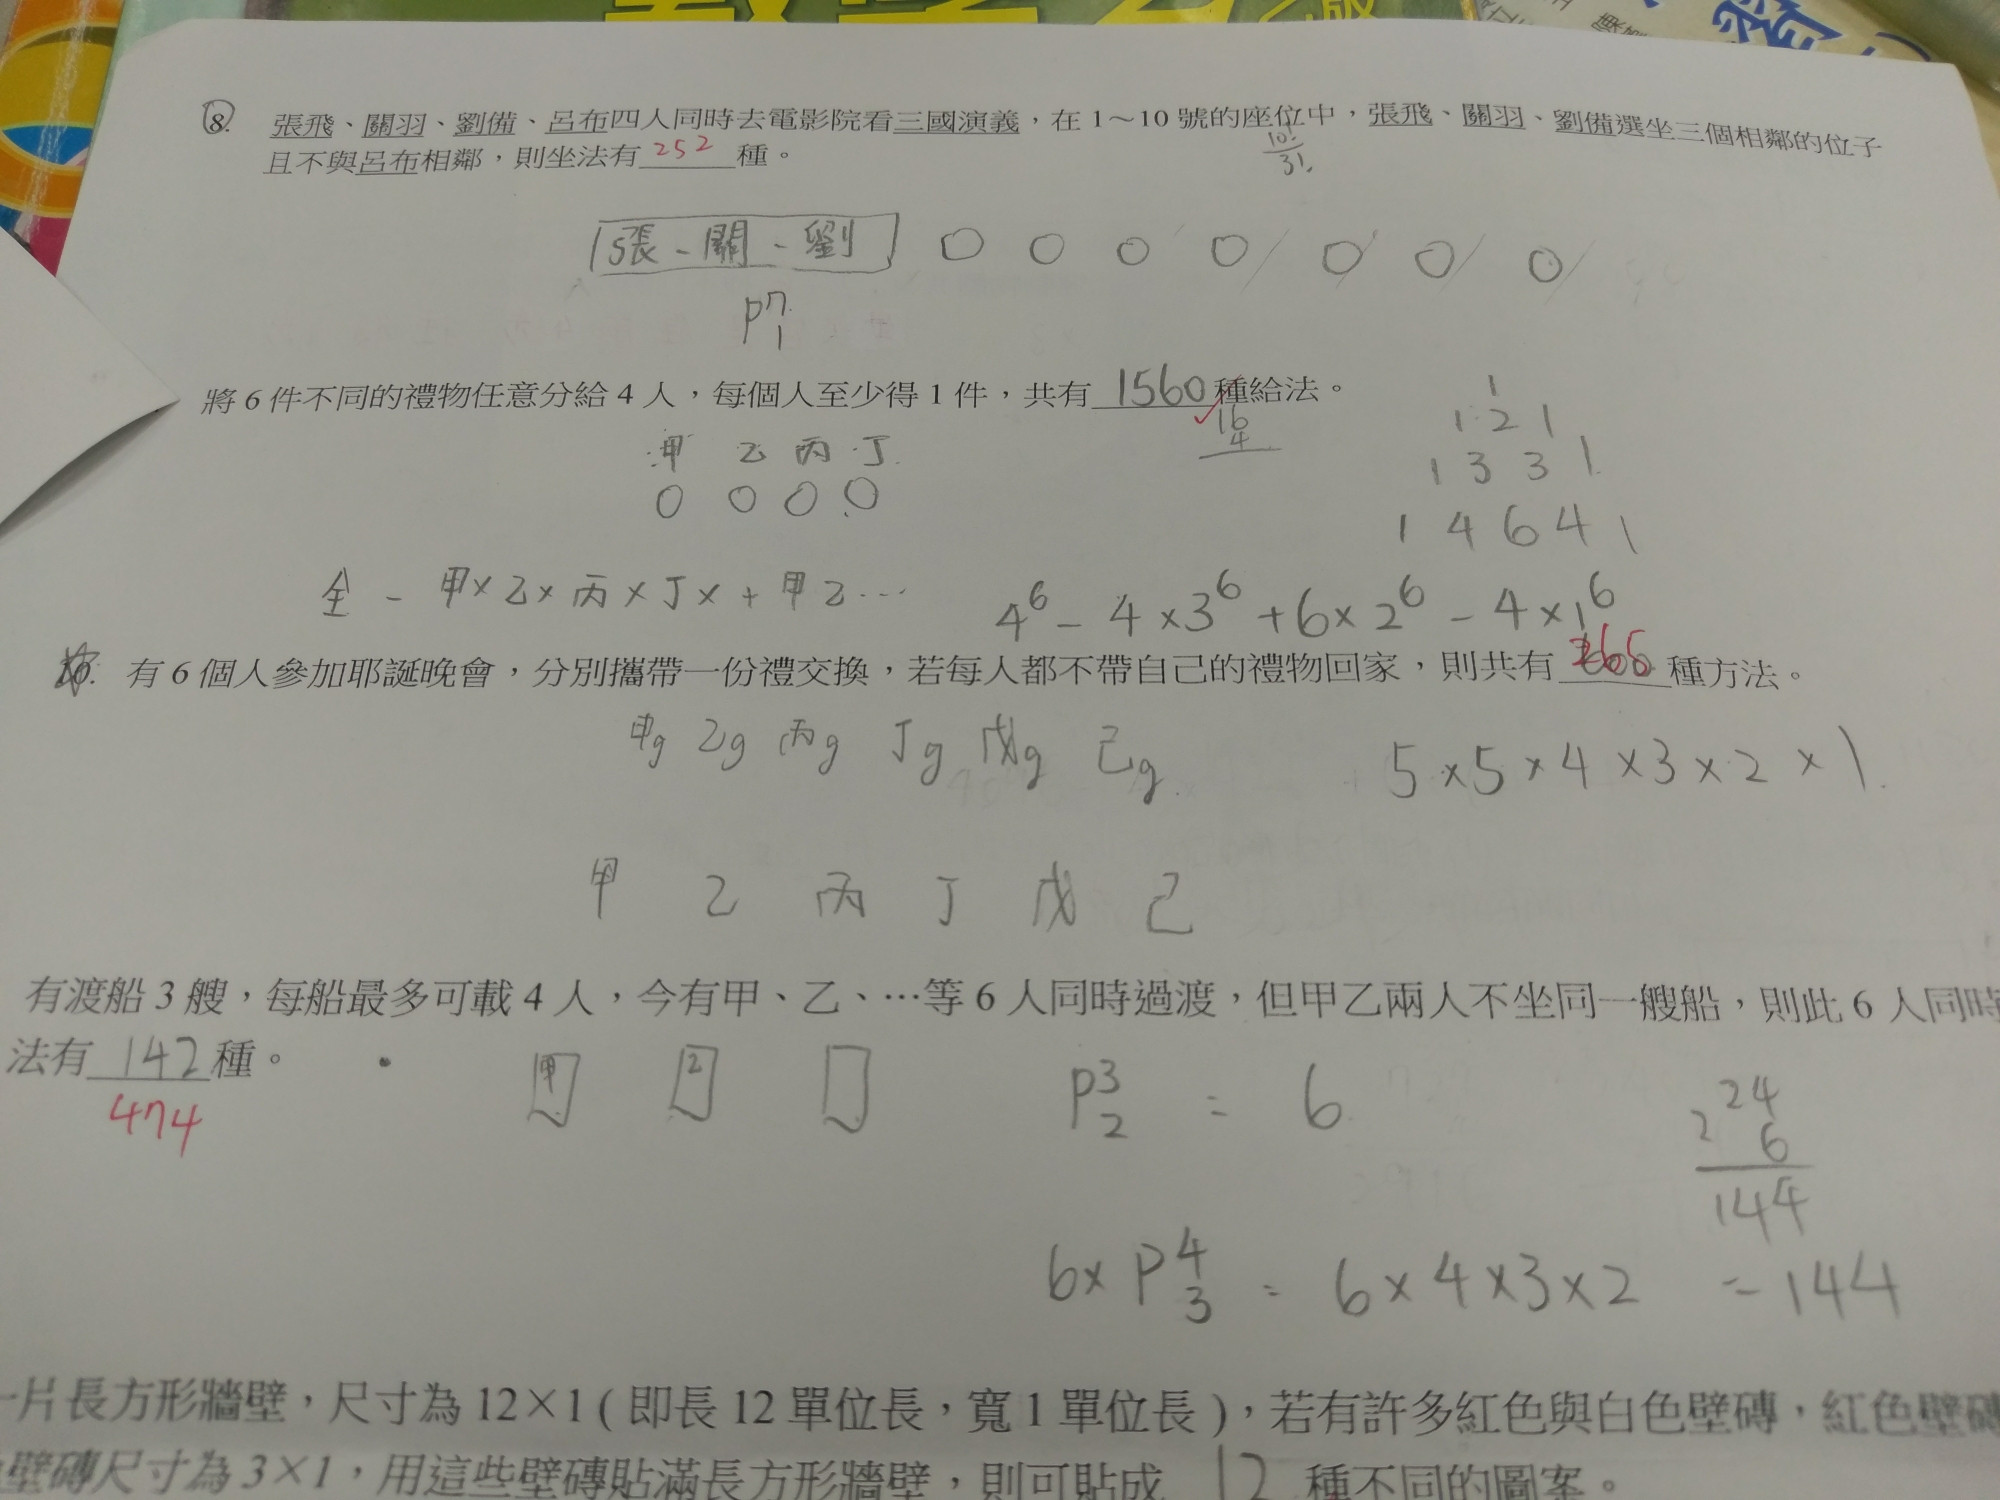 8. 張飛、關羽、劉備、呂布四人同時去電影院看三國演義，在 1～10 號的座位中，張飛、關羽、劉備選坐三個相鄰的位子
且不與呂布相鄰，則坐法有 252 種。
10!
3!
張 - 關 - 劉 O O O O O O O
P 7 1
將 6 件不同的禮物任意分給 4 人，每個人至少得 1 件，共有 1560 種給法。
16
4
1
1 2 1
1 3 3 1
1 4 6 4 1
甲 乙 丙 丁
O O O O
全 - 甲× 乙× 丙× 丁× + 甲乙…
4⁶ - 4×3⁶ + 6×2⁶ - 4×1⁶
10. 有 6 個人參加耶誕晚會，分別攜帶一份禮交換，若每人都不帶自己的禮物回家，則共有 265 種方法。
甲g 乙g 丙g 丁g 戊g 己g
5×5×4×3×2×1
甲 乙 丙 丁 戊 己
有渡船 3 艘，每船最多可載 4 人，今有甲、乙、…等 6 人同時過渡，但甲乙兩人不坐同一艘船，則此 6 人同時
法有 142 種。
474
甲 乙
P 3 2 = 6
24
2 6
144
6×P 4 3 = 6×4×3×2 = 144
一片長方形牆壁，尺寸為 12×1 ( 即長 12 單位長，寬 1 單位長 )，若有許多紅色與白色壁磚，紅色壁磚
壁磚尺寸為 3×1，用這些壁磚貼滿長方形牆壁，則可貼成 12 種不同的圖案。